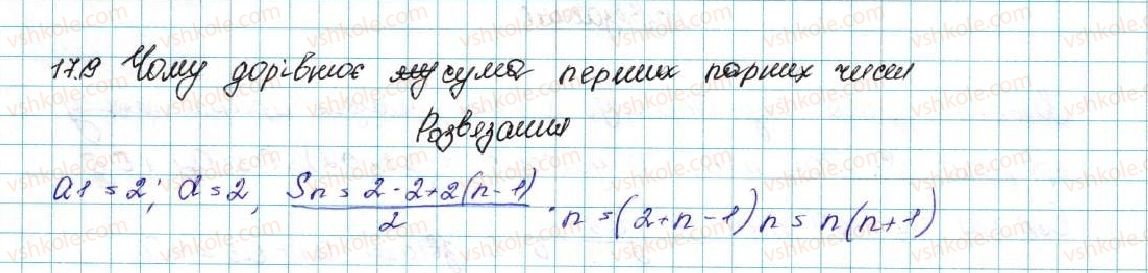 17.9 Чому дорівнює сума перших парних чисел
Розвязання
a1 = 2; d = 2, Sn = 2·2+2(n-1)/2 · n = (2+n-1)n = n(n+1)